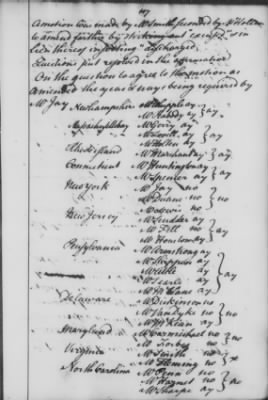 A motion was made by Mr Smith seconded by Mr Holten
to amend farther by striking out and in
lieu thereof inserting "discharged"
Question put resolved in the affirmative
On the question to agree to the motion as
amended the yeas & nays being required by
Mr Jay Newhampshire Mr Whipple ay
Massachusetts bay Mr Gerry ay
Mr Lovell ay } ay
Mr Holten ay
Rhode island Mr Marchant ay } ay
Connecticut Mr Huntington ay
Mr Spencer ay } ay
New York Mr Jay no
Mr Duane no } no
Mr Lewis no
New Jersey Mr Scudder ay
Mr Fell no } ay
Mr Houston ay
Pensylvania Mr Armstrong ay
Mr Shippen ay
Mr Searle ay } ay
Mr McLene ay
Delaware Mr Dickinson no
Mr Vandyke no } no
Mr McKean ay
Maryland Mr Carmichael no } no
Mr Forbes no
Virginia Mr Smith no
Mr Fleming no } no
North Carolina Mr Penn no
Mr Sharpe ay